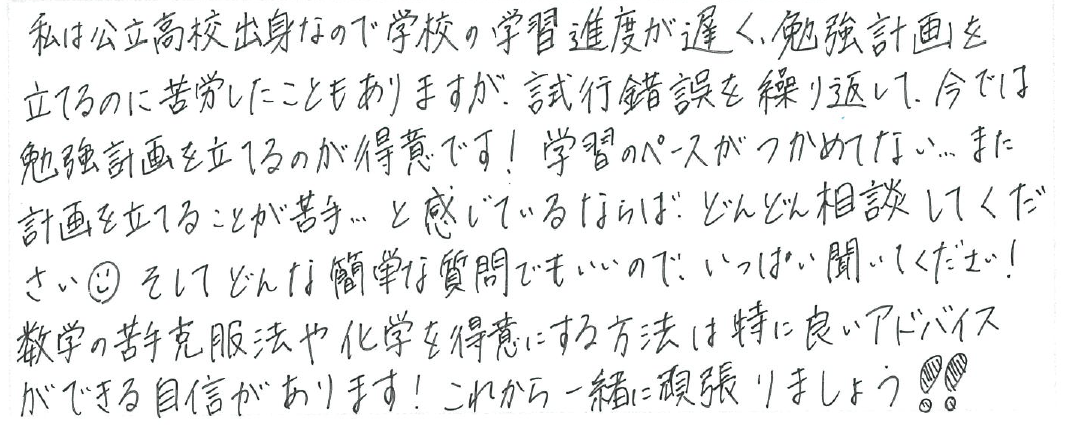 私は公立高校出身なので学校の学習進度が遅く、勉強計画を
立てるのに苦労したこともありますが、試行錯誤を繰り返して、今では
勉強計画を立てるのが得意です！学習のペースがつかめてない…また
計画を立てることが苦手…と感じているならば、どんどん相談してくだ
さい☺そしてどんな簡単な質問でもいいので、いっぱい聞いてください！
数学の苦手克服法や化学を得意にする方法は特に良いアドバイス
ができる自信があります！これから一緒に頑張りましょう！！